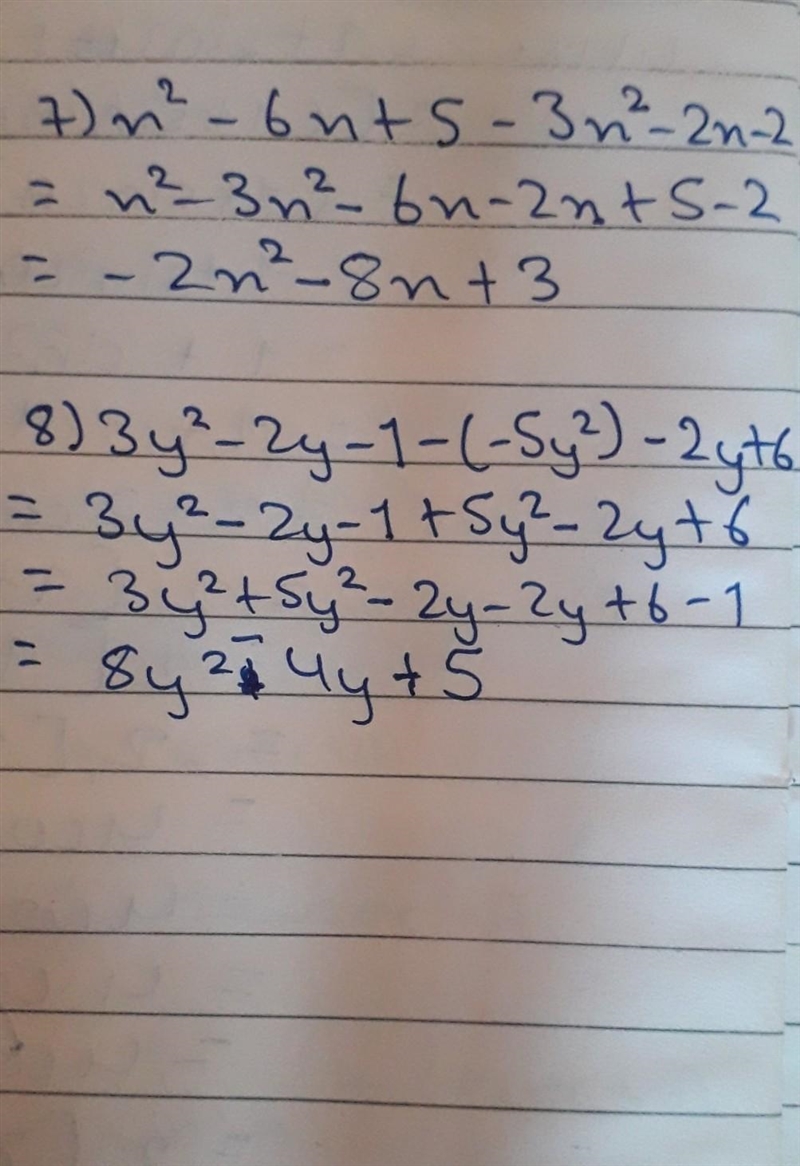 7) n² - 6n + 5 - 3n² - 2n - 2
= n² - 3n² - 6n - 2n + 5 - 2
= - 2n² - 8n + 3
8) 3y² - 2y - 1 - (-5y²) - 2y + 6
= 3y² - 2y - 1 + 5y² - 2y + 6
= 3y² + 5y² - 2y - 2y + 6 - 1
= 8y² - 4y + 5